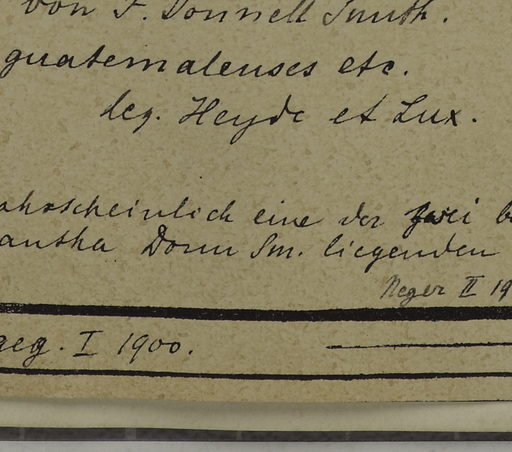 von J. Donnell Smith.
guatemalenses etc.
leg. Heyde et Lux.
ahrscheinlich eine der zwei b
antha Donn Sm. liegenden
Neger II 19
geg. I 1900.